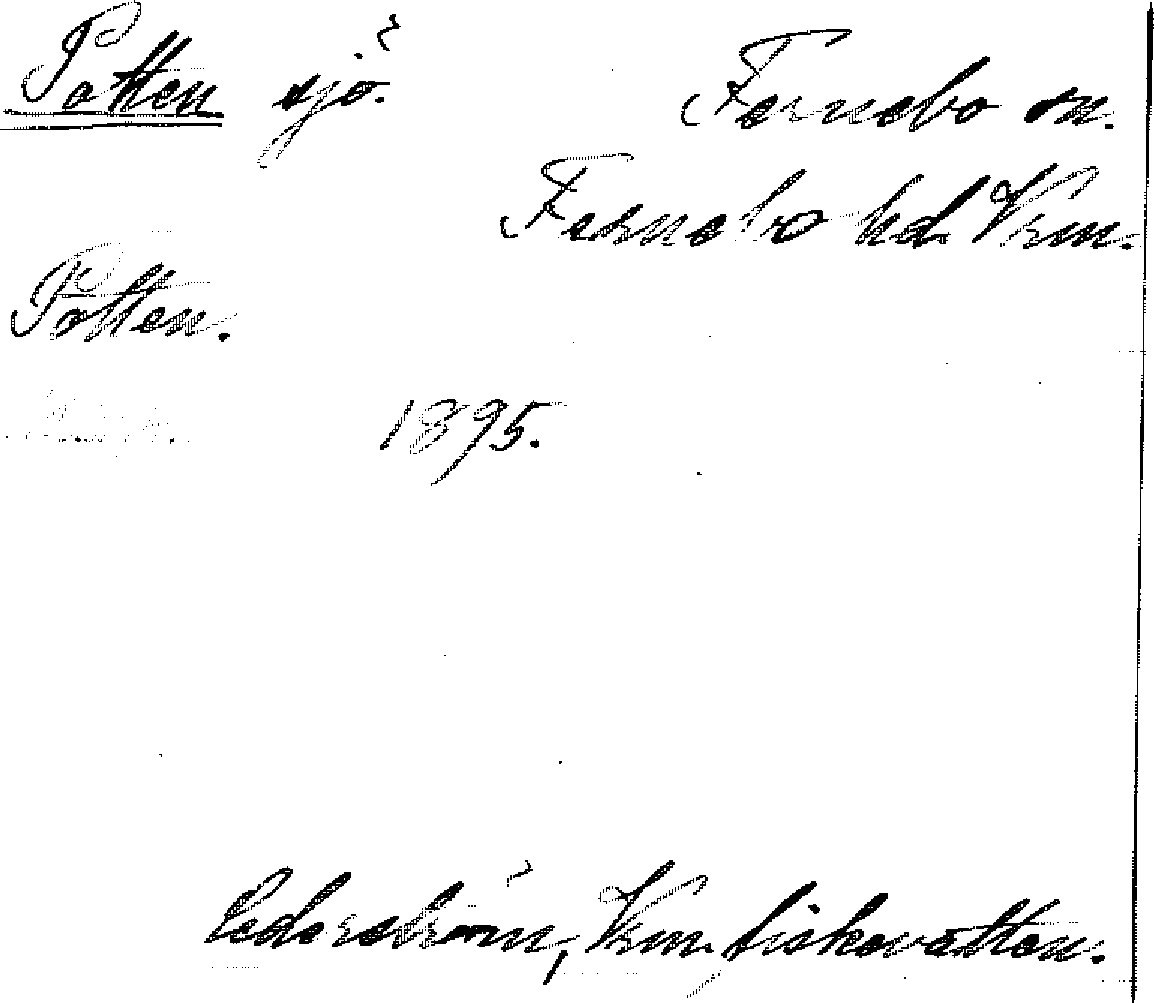 Patten sjö. Fernebo sn.
Fernebo hd. Vrm.
Patten.
1895.
Cederström, Vrm. fiskevatten.